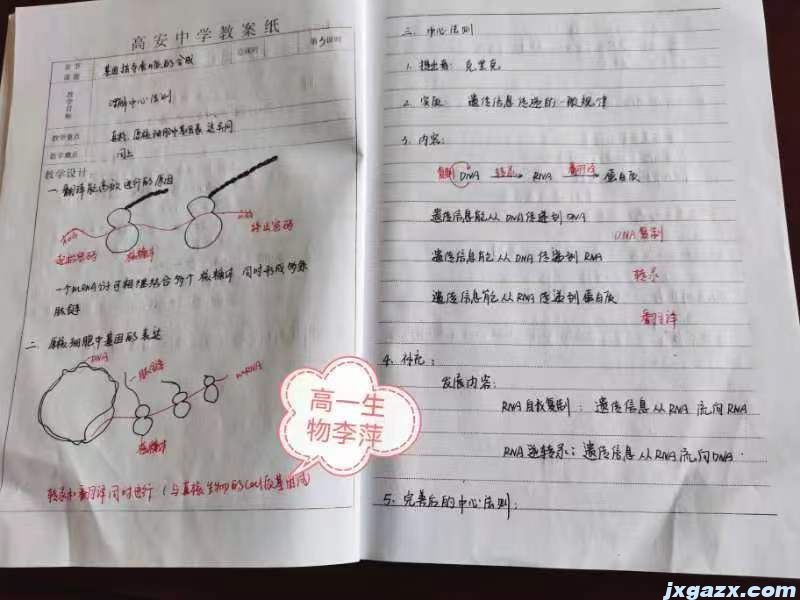 高安中学教案纸
课时
第3课时
课题
基因指导蛋白质的合成
教学目标
理解中心法则
教学重点
真核、原核细胞中基因表达异同
教学难点
同上
教学设计:
一、翻译能高效进行的原因
起始密码
核糖体
终止密码
一个mRNA分子可相继结合多个核糖体 同时形成多条
肽链
二、原核细胞中基因的表达
DNA
肽链
mRNA
核糖体
转录和翻译同时进行(与真核生物的
高一生
物李萍
三、中心法则
1. 提出者: 克里克
2. 实质: 遗传信息传递的一般规律
3. 内容:
复制 DNA 转录 RNA 翻译 蛋白质
遗传信息能从DNA传递到DNA
DNA复制
遗传信息能从DNA传递到RNA
转录
遗传信息能从RNA传递到蛋白质
翻译
4. 补充:
发展内容:
RNA自我复制: 遗传信息从RNA流向RNA
RNA逆转录: 遗传信息从RNA流向DNA.
5. 完善后的中心法则:
jxgazx.com